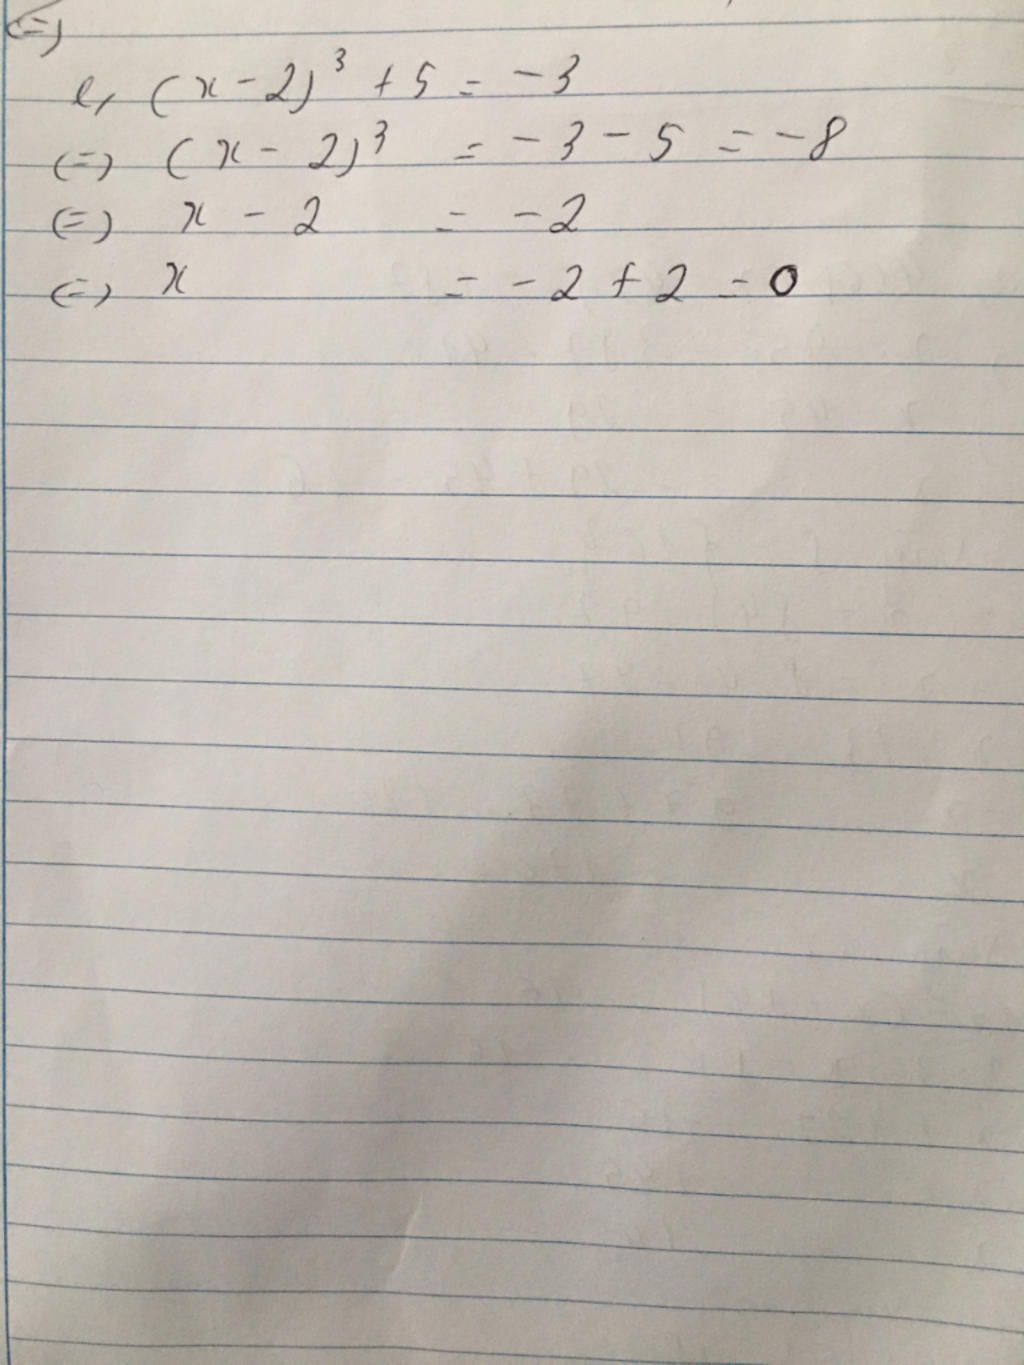 (=)
e, (x - 2)³ + 5 = -3
(=) (x - 2)³ = -3 - 5 = -8
(=) x - 2 = -2
(=) x = -2 + 2 = 0